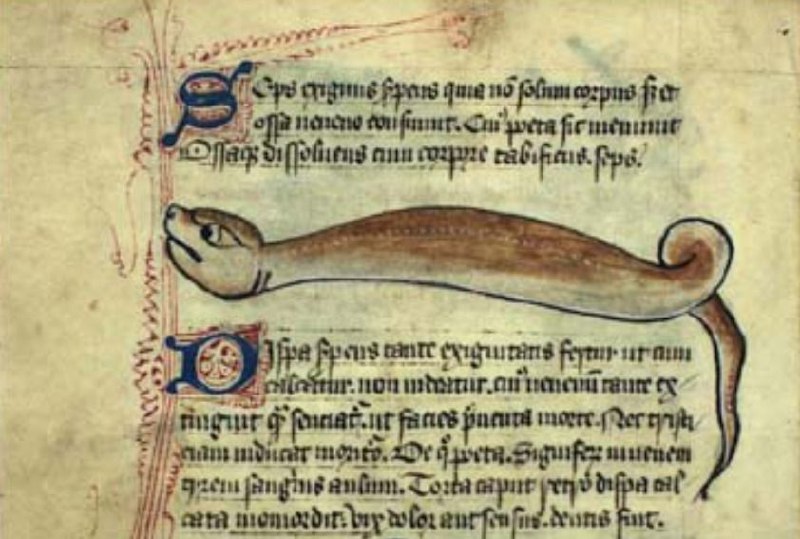 Seps exiguus serpens quia nō solum corpus sʒ et
ossa ueneno consumit. Cuiꝰ poeta sic meminit
Ossaqꝫ dissoluens cum corpore tabificus. seps.
Dispa serpens tante exiguitatis fertur ut cum
calcatur. non uideatur. cuiꝰ uenenū tante ex
tinguit
ut facies
morte. Nec tristi
ciam inducat
De
poeta. Signiferū iuuenem
tyreni sanguinis aulum. Torta caput retro dispa cal
cata momordit. vix dolor aut sensus. dentis fuit.